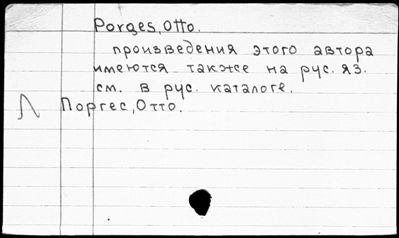 Porges, Otto.
произведения этого автора
имеются также на рус. яз.
см. в рус. каталоге.
Л Поргес, Отто.